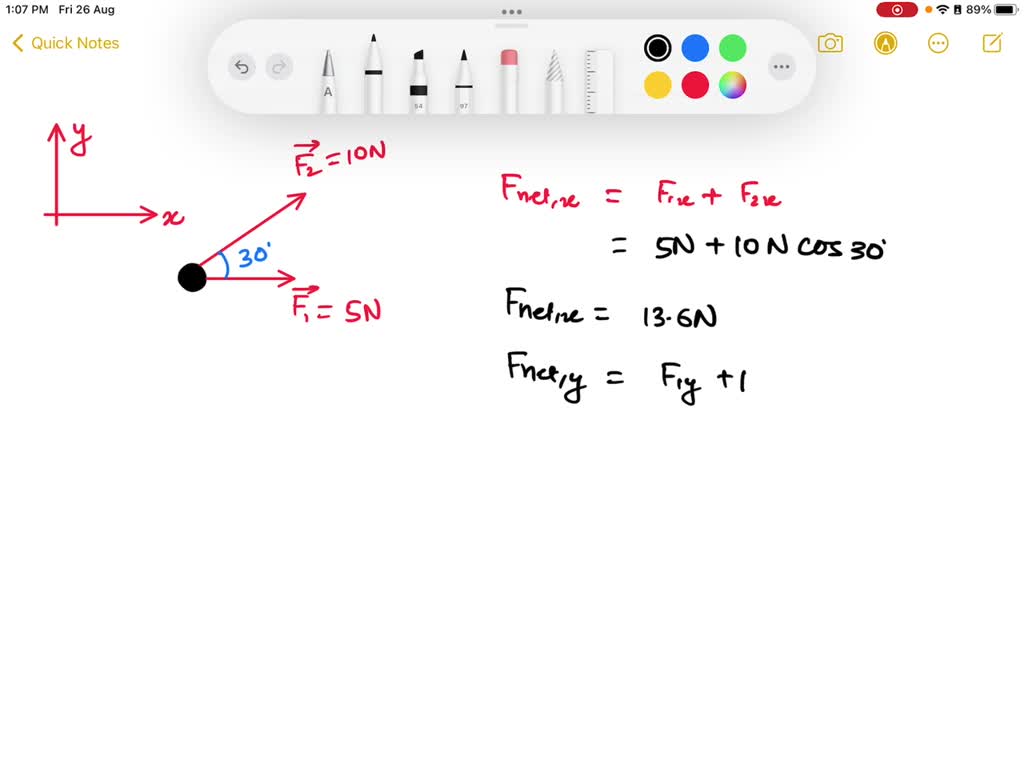 1:07 PM Fri 26 Aug
89%
Quick Notes
A
54
97
y
x
F₂ = 10N
30°
F₁ = 5N
Fnet,x = F₁x + F₂x
= 5N + 10 N cos 30°
Fnet,x = 13.6N
Fnet,y = F₁y + 1